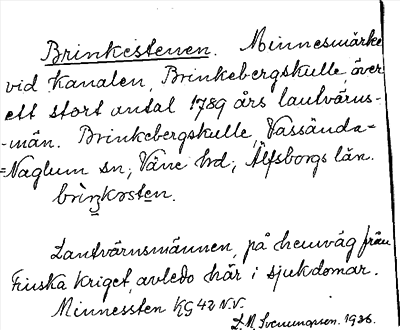 Brinkestenen. Minnesmärke
vid kanalen, Brinkebergskulle, över
ett stort antal 1789 års lantvärns-
-män. Brinkebergskulle, Vassända-
=Naglum sn, Väne hd, Älfsborgs län.
brìŋkɷsten.
Lantvärnsmännen, på hemväg från
Finska kriget, avledo här i sjukdomar.
Minnessten KG42 N.V.
1936.